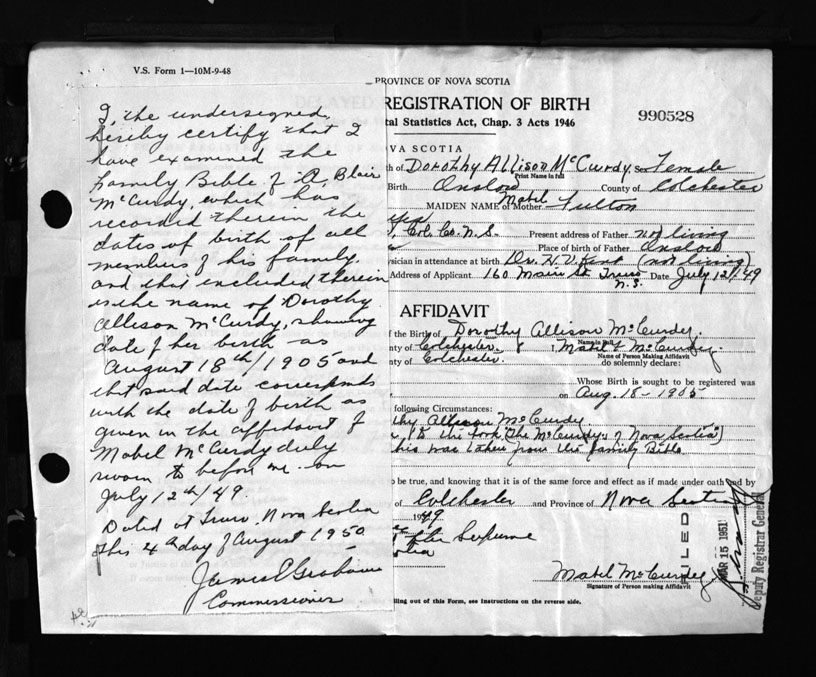 V.S. Form 1—10M-9-48
I, the undersigned,
hereby certify that I
have examined the
family Bible of A. Blair
McCurdy, which has
recorded therein the
dates of birth of all
members of his family,
and that included therein
is the name of Dorothy
Allison McCurdy, showing
date of her birth as
August 18th/1905 and
that said date corresponds
with the date of birth as
given in the affidavit of
Mabel McCurdy duly
sworn to before me on
July 12th/49.
Dated at Truro, Nova Scotia
this 4 day of August 1950
James C Graham
Commissioner
PROVINCE OF NOVA SCOTIA
REGISTRATION OF BIRTH
990528
tal Statistics Act, Chap. 3 Acts 1946
VA SCOTIA
h of Dorothy Allison McCurdy. Sex Female
Print Name in full
Birth Onslow County of Colchester
MAIDEN NAME of Mother Mabel Fulton
Col. Co. N.S. Present address of Father not living
Place of birth of Father Onslow
ysician in attendance at birth Dr. H. V. Kent (not living)
Address of Applicant 160 Main St Truro N.S. Date July 12/49
AFFIDAVIT
f the Birth of Dorothy Allison McCurdy.
Name in full
ty of Colchester. I, Mabel F McCurdy.
Name of Person Making Affidavit
nty of Colchester. do solemnly declare:
Whose Birth is sought to be registered was
on Aug. 18 - 1905
following Circumstances:
thy Allison McCurdy
in the book (The McCurdys of Nova Scotia)
his was taken from the family Bible
o be true, and knowing that it is of the same force and effect as if made under oath and by
of Colchester and Province of Nova Scotia
1949
otia
Mabel McCurdy
Signature of Person making Affidavit
lling out of this Form, see instructions on the reverse side.
FILED
MAR 15 1951
Deputy Registrar General